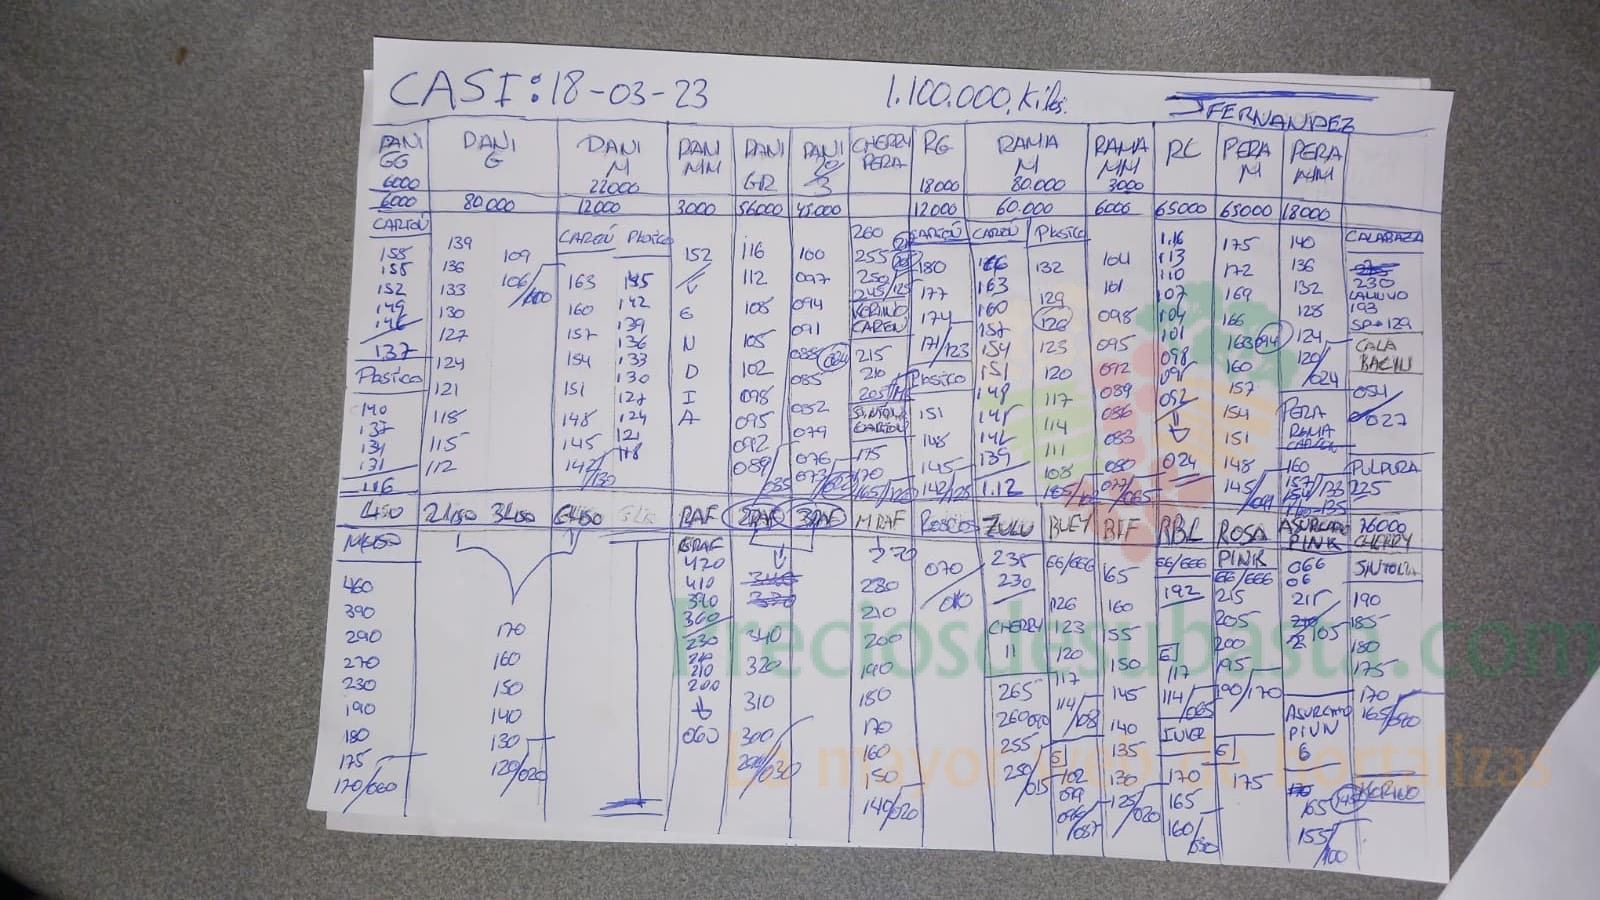 CASI: 18-03-23 1.100.000, Kilos.
JFERNANDEZ
DANI GG DANI G DANI M DANI MM DANI GR DANI CHERRY PERA RG RAMA M RAMA MM RC PERA M PERA MM
6000 22000 18000 80.000 3000
6000 80.000 12000 3000 56000 45.000 12000 60.000 6000 65000 65000 18000
CARTÓN
155
155
152
149
146
137
Plastico
140
137
134
131
116
139
136
133
130
127
124
121
118
115
112
109
106/
CARTÓN Plastico
163
160
157
154
151
148
145
142/130
145
142
139
136
133
130
127
124
121
118
152
V
E
N
D
I
A
116
112
108
105
102
098
095
092
089/035
100
097
094
091
088
085
082
079
076
073/
260
255
250
245/125
KORINO
CARTÓN
215
210
205/
SINTONIA
CARTÓN
175
170
165/120
CARTÓN
180
177
174
171/123
Plastico
151
148
145
142/125
CARTÓN Plastico
166
163
160
157
154
151
148
145
142
139
1.12
132
129
126
123
120
117
114
111
108
105/102
104
101
098
095
092
089
086
083
080
077/065
1.16
113
110
107
104
101
098
095
092
024
175
172
169
166
163 094
160
157
154
151
148
145/091
140
136
132
128
124
120/024
PERA
RAMA
CARTÓN
160
157/133
CALABAZA
230
193
SP-129
CALA
BACIN
054
027
PULPURA
225
RAF 2RAF 3RAF MRAF Roscios ZULU BUEY BIF RBL ROSA ASURCADO PINK 76000 CHERRY
460
390
290
270
230
190
180
175
170/060
170
160
150
140
130
120/020
GRAF
420
410
390
360
230
220
210
200
060
340
330
340
320
310
300
290/030
270
230
210
200
190
180
170
160
150
140/020
070
010
235
230
CHERRY
11
265
260
255
250/015
66/666
126
123
120
117
114/108
G
102
099
096/087
165
160
155
150
145
140
135
130
125/020
66/666
192
G
117
114/065
170
165
160/
PINK
66/666
215
205
200
195
190/170
G
175
066
06
215
105
ASURCADO
PIUN
6
165 145
155/100
SINTONIA
190
185
180
175
170
165/090
KORINO
Preciosdesubasta.com
La mayor web de hortalizas